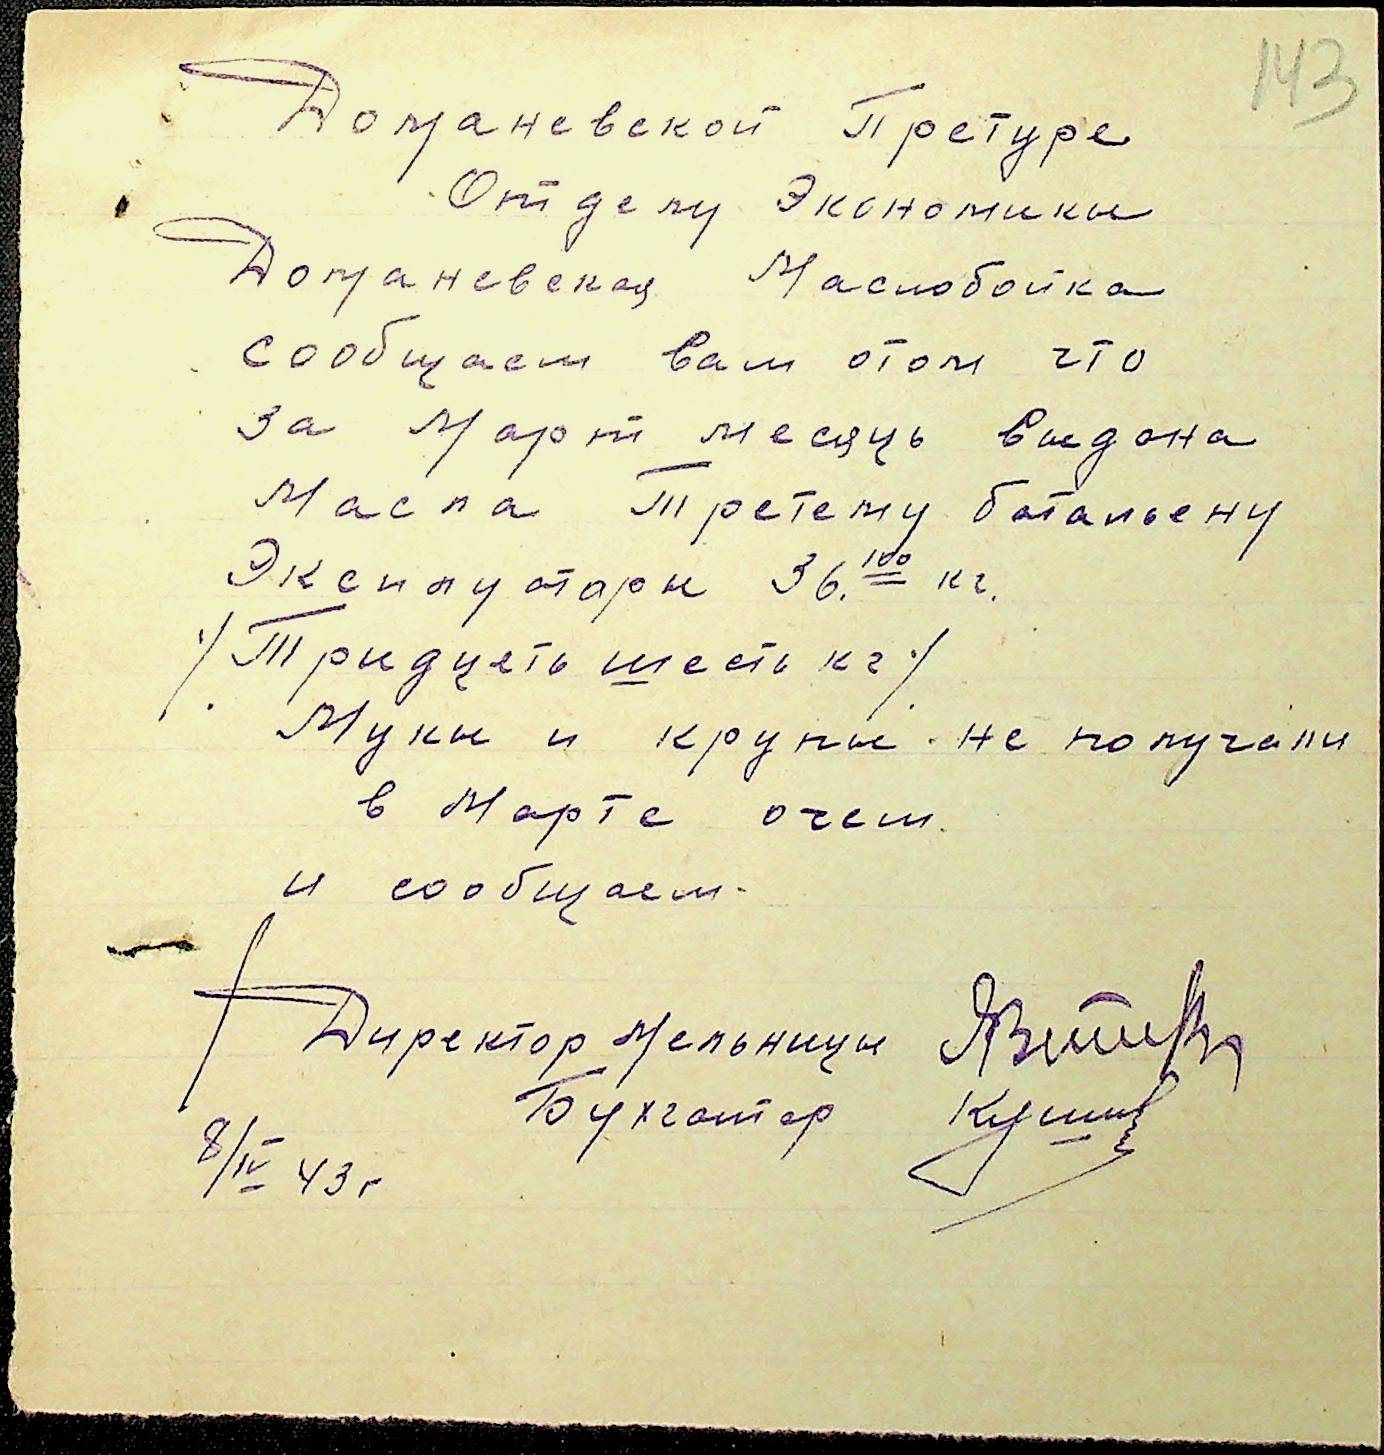 143
Доманевской Претуре
Отделу Экономики
Доманевская Маслобойка
сообщаем вам отом что
за Март месяць выдона
Масла Третему батальену
Эксплуотари 36.100 кг.
/Тридцеть шесть кг/
Муки и крупы не получали
в Марте очем
и сообщаем.
Директор Мельницы
Бухгалтер
8/IV 43 г